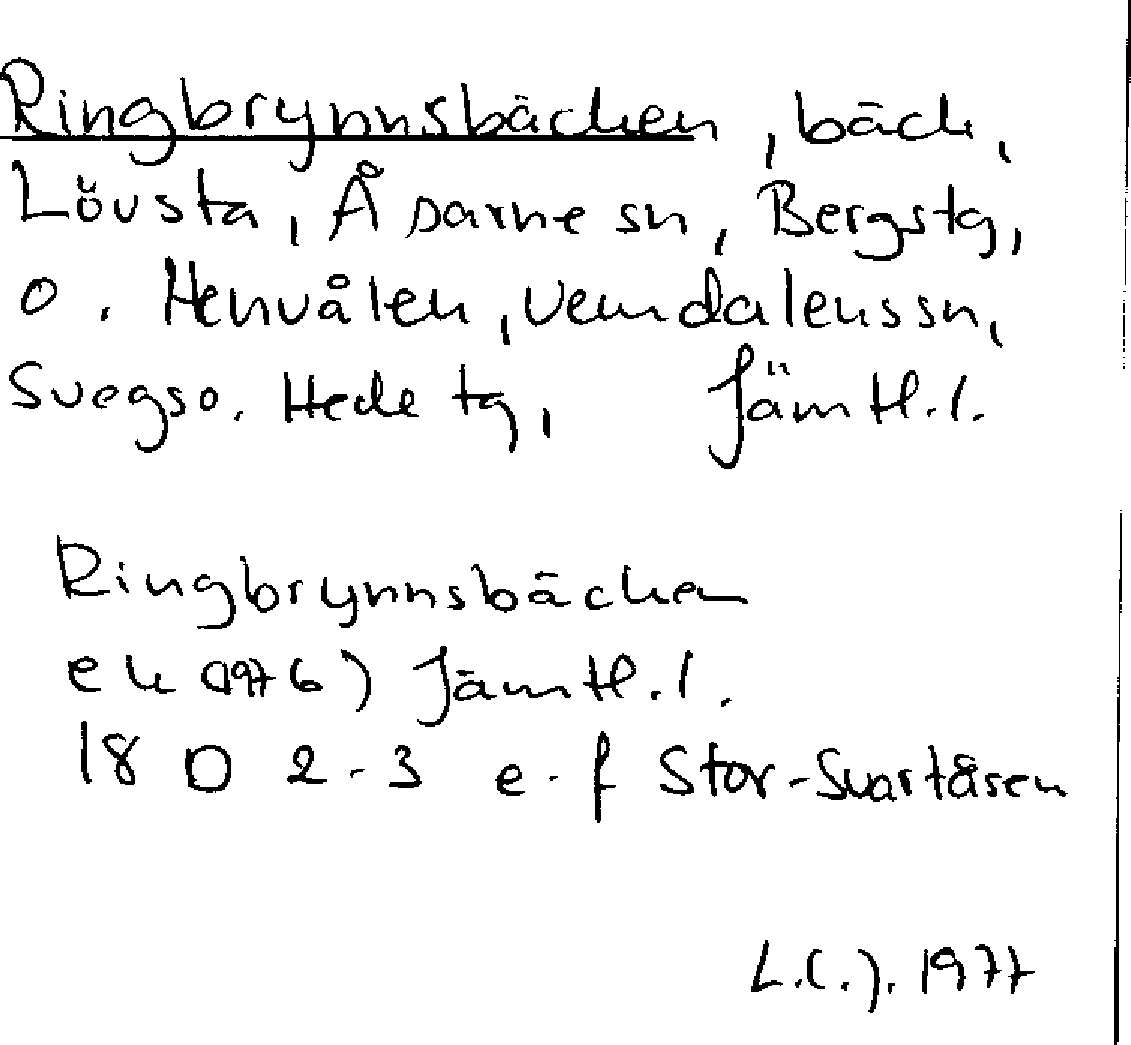 Ringbrynnsbäcken, bäck,
Lövsta, Åsarne sn, Bergs tg,
o. Henvålen, Vemdalens sn,
Svegs o. Hede tg, Jämtl. l.
Ringbrynnsbäcken
ek (1976) Jämtl. l.
18 D 2-3 e-f Stor-Svartåsen
L.C.J. 1977